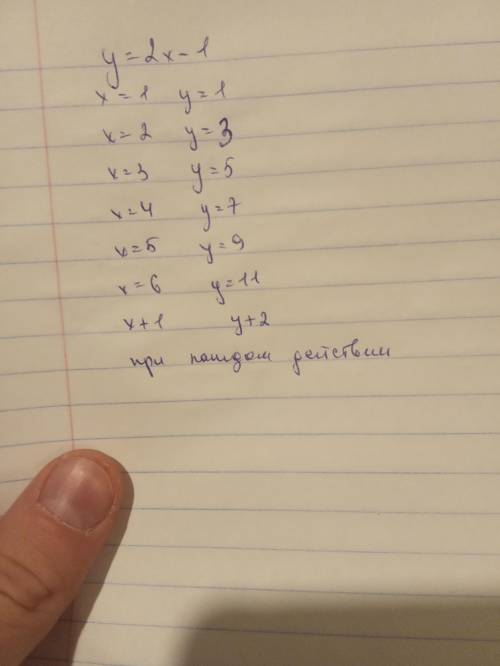 y=2x-1
x=1 y=1
x=2 y=3
x=3 y=5
x=4 y=7
x=5 y=9
x=6 y=11
x+1 y+2
при каждом действии